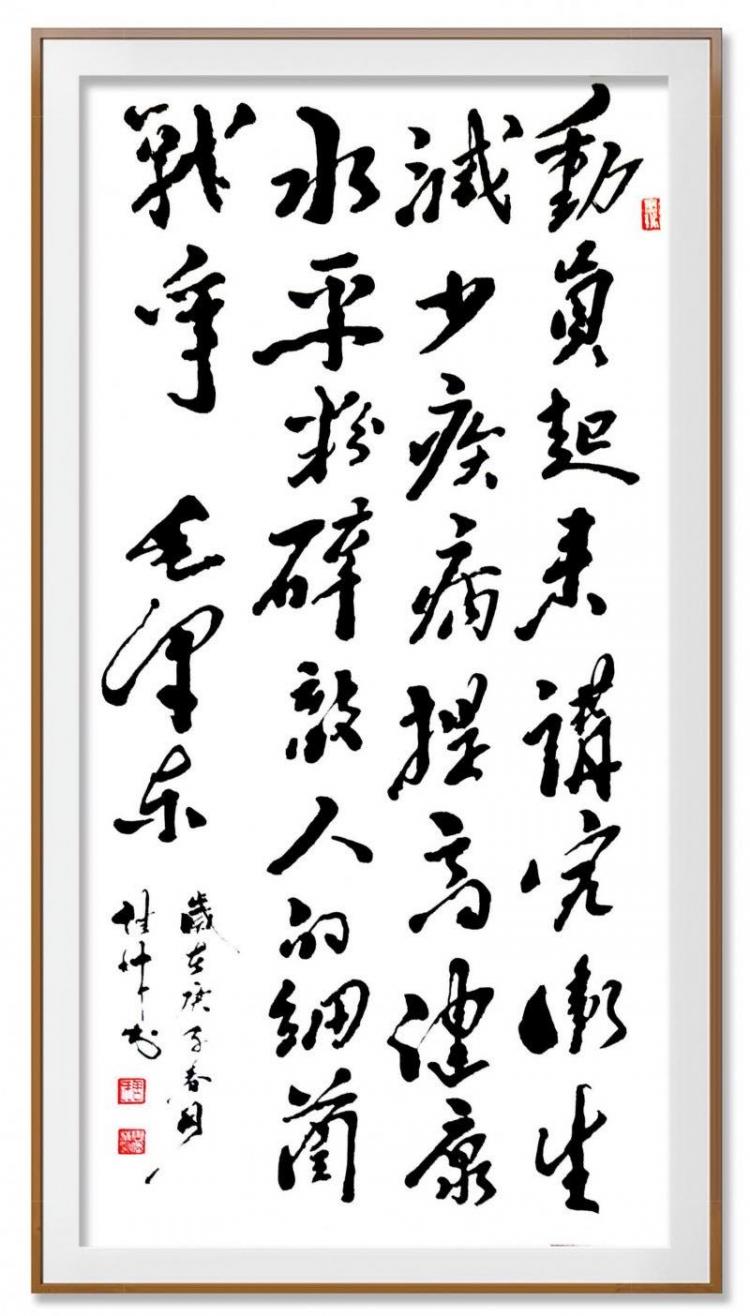 動員起来講究衛生
減少疾病提高健康
水平粉碎敵人的細菌
戰争 毛澤东
歲在庚子春月
书